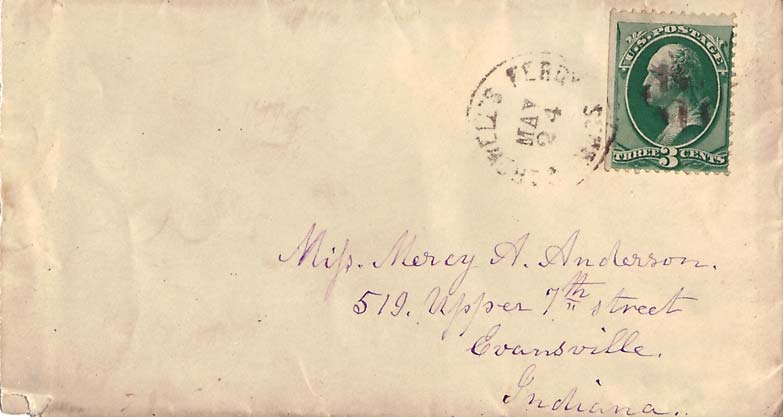 U.S. POSTAGE
THREE 3 CENTS
MAY
24
Miſs. Mercy A. Anderson.
519. Upper 7th street
Evansville.
Indiana.